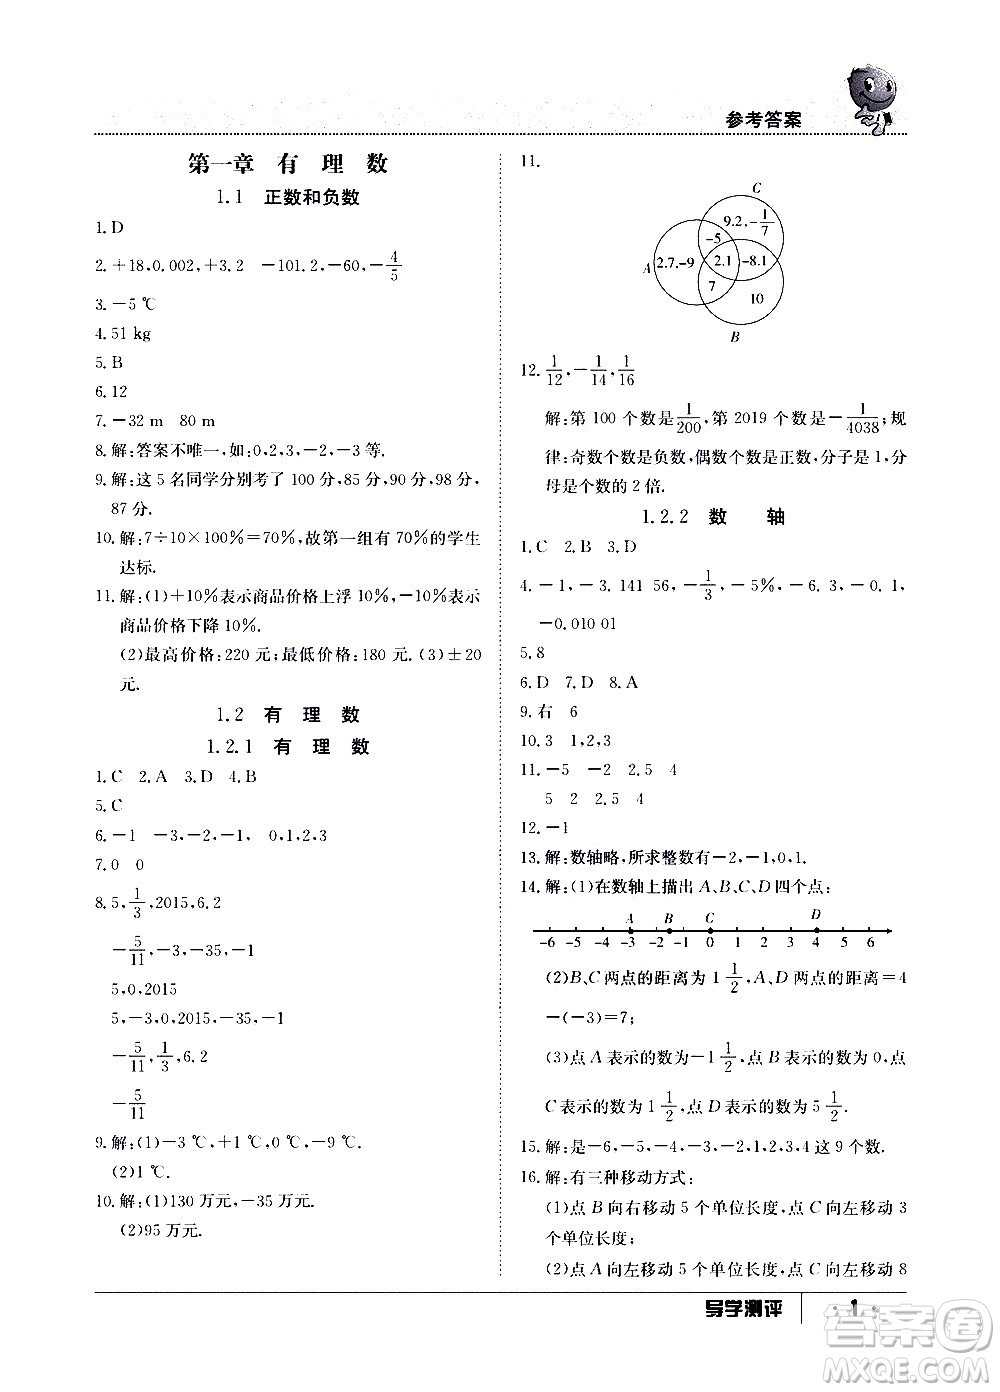 参考答案
第一章 有 理 数
1.1 正数和负数
1.D
2.+18,0.002,+3.2 -101.2,-60,-4/5
3.-5 ℃
4.51 kg
5.B
6.12
7.-32 m 80 m
8.解:答案不唯一,如:0,2,3,-2,-3等.
9.解:这5名同学分别考了100分,85分,90分,98分,
87分.
10.解:7÷10×100%=70%,故第一组有70%的学生
达标.
11.解:(1)+10%表示商品价格上浮10%,-10%表示
商品价格下降10%.
(2)最高价格:220元;最低价格:180元.(3)±20
元.
1.2 有 理 数
1.2.1 有 理 数
1.C 2.A 3.D 4.B
5.C
6.-1 -3,-2,-1, 0,1,2,3
7.0 0
8.5,1/3,2015,6.2
-5/11,-3,-35,-1
5,0,2015
5,-3,0,2015,-35,-1
-5/11,1/3,6.2
-5/11
9.解:(1)-3 ℃,+1 ℃,0 ℃,-9 ℃.
(2)1 ℃.
10.解:(1)130万元,-35万元.
(2)95万元.
11.
C
9.2,-1/7
-5
A 2.7,-9 2.1 -8.1
7
10
B
12.1/12,-1/14,1/16
解:第100个数是1/200,第2019个数是-1/4038;规
律:奇数个数是负数,偶数个数是正数,分子是1,分
母是个数的2倍.
1.2.2 数 轴
1.C 2.B 3.D
4.-1,-3.141 56,-1/3,-5%,-6.3,-0.1,
-0.010 01
5.8
6.D 7.D 8.A
9.右 6
10.3 1,2,3
11.-5 -2 2.5 4
5 2 2.5 4
12.-1
13.解:数轴略,所求整数有-2,-1,0,1.
14.解:(1)在数轴上描出A、B、C、D四个点:
A B C D
-6 -5 -4 -3 -2 -1 0 1 2 3 4 5 6
(2)B、C两点的距离为1 1/2,A、D两点的距离=4
-(-3)=7;
(3)点A表示的数为-1 1/2,点B表示的数为0,点
C表示的数为1 1/2,点D表示的数为5 1/2.
15.解:是-6,-5,-4,-3,-2,1,2,3,4这9个数.
16.解:有三种移动方式:
(1)点B向右移动5个单位长度,点C向左移动3
个单位长度;
(2)点A向左移动5个单位长度,点C向左移动8
导学测评 1
答案圈
MXQE.COM